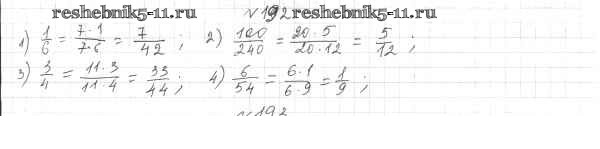 reshebnik5-11.ru №192 reshebnik5-11.ru
1) 1/6 = 7·1/7·6 = 7/42 ; 2) 100/240 = 20·5/20·12 = 5/12 ;
3) 3/4 = 11·3/11·4 = 33/44 ; 4) 6/54 = 6·1/6·9 = 1/9 ;
№193